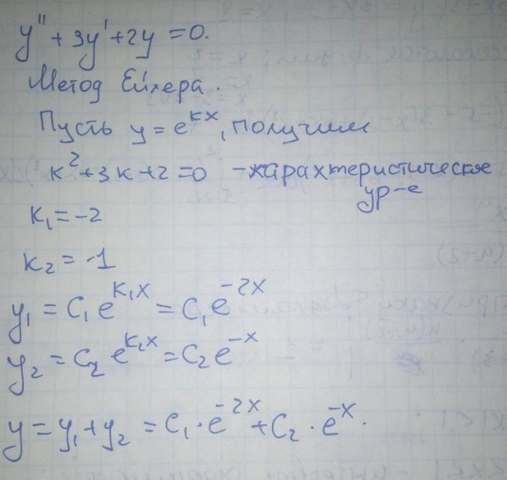 y'' + 3y' + 2y = 0.
Метод Эйлера.
Пусть y = e^{kx}, получим
k² + 3k + 2 = 0 – характеристическое
ур-е
k₁ = -2
k₂ = -1
y₁ = C₁e^{k₁x} = C₁e^{-2x}
y₂ = C₂e^{k₂x} = C₂e^{-x}
y = y₁ + y₂ = C₁·e^{-2x} + C₂·e^{-x}.